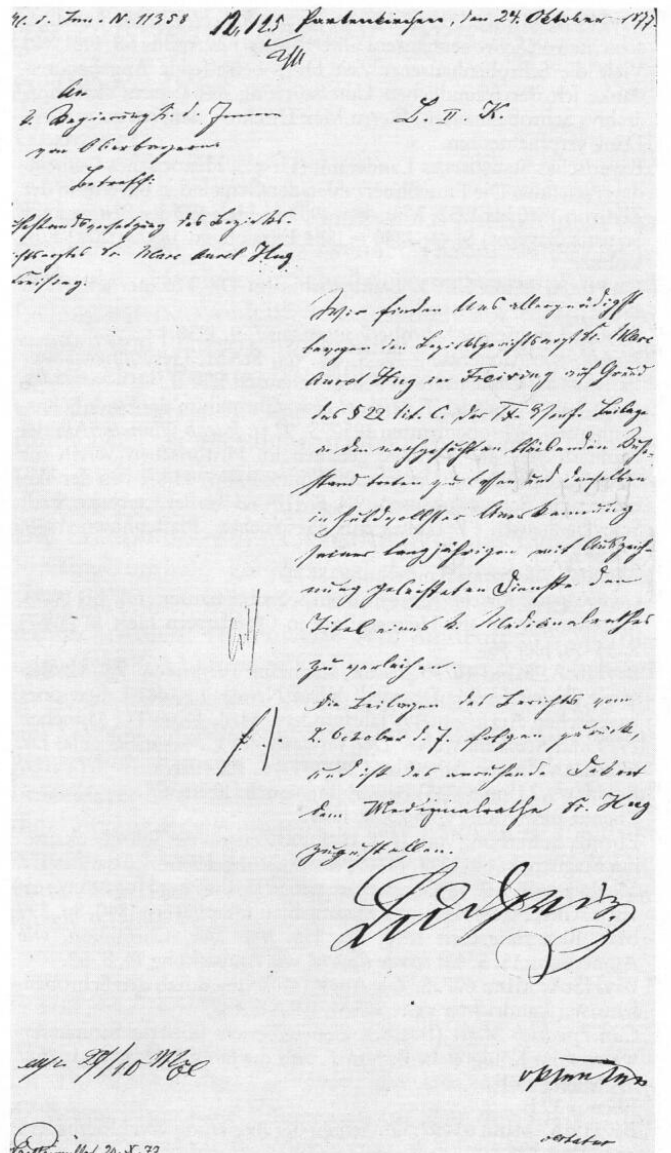 M. d. Inn. N. 11358 Partenkirchen, den 24. Oktober 1877.
An
d. Regierung K. d. Innern
von Oberbayern
L. II. K.
Betreff:
Ruhestandsversetzung des Bezirks-
gerichtsarztes Dr. Marc Aurel Hug
Freising.
Wir finden Uns allergnädigst
bewogen den Bezirksgerichtsarzt Dr. Marc
Aurel Hug in Freising auf Grund
des § 22 lit. C. der IX. Verf. Beilage
in den nachgesuchten bleibenden Ruhe-
stand treten zu lassen und demselben
in huldvollster Anerkennung
seiner langjährigen mit Auszeich-
nung geleisteten Dienste den
Titel eines k. Medicinalrathes
zu verleihen.
Die Beilagen des Berichts vom
2. October d. J. folgen zurück,
und ist das anruhende Dekret
dem Medizinalrathe Dr. Hug
zuzustellen.
Ludwig
29/10